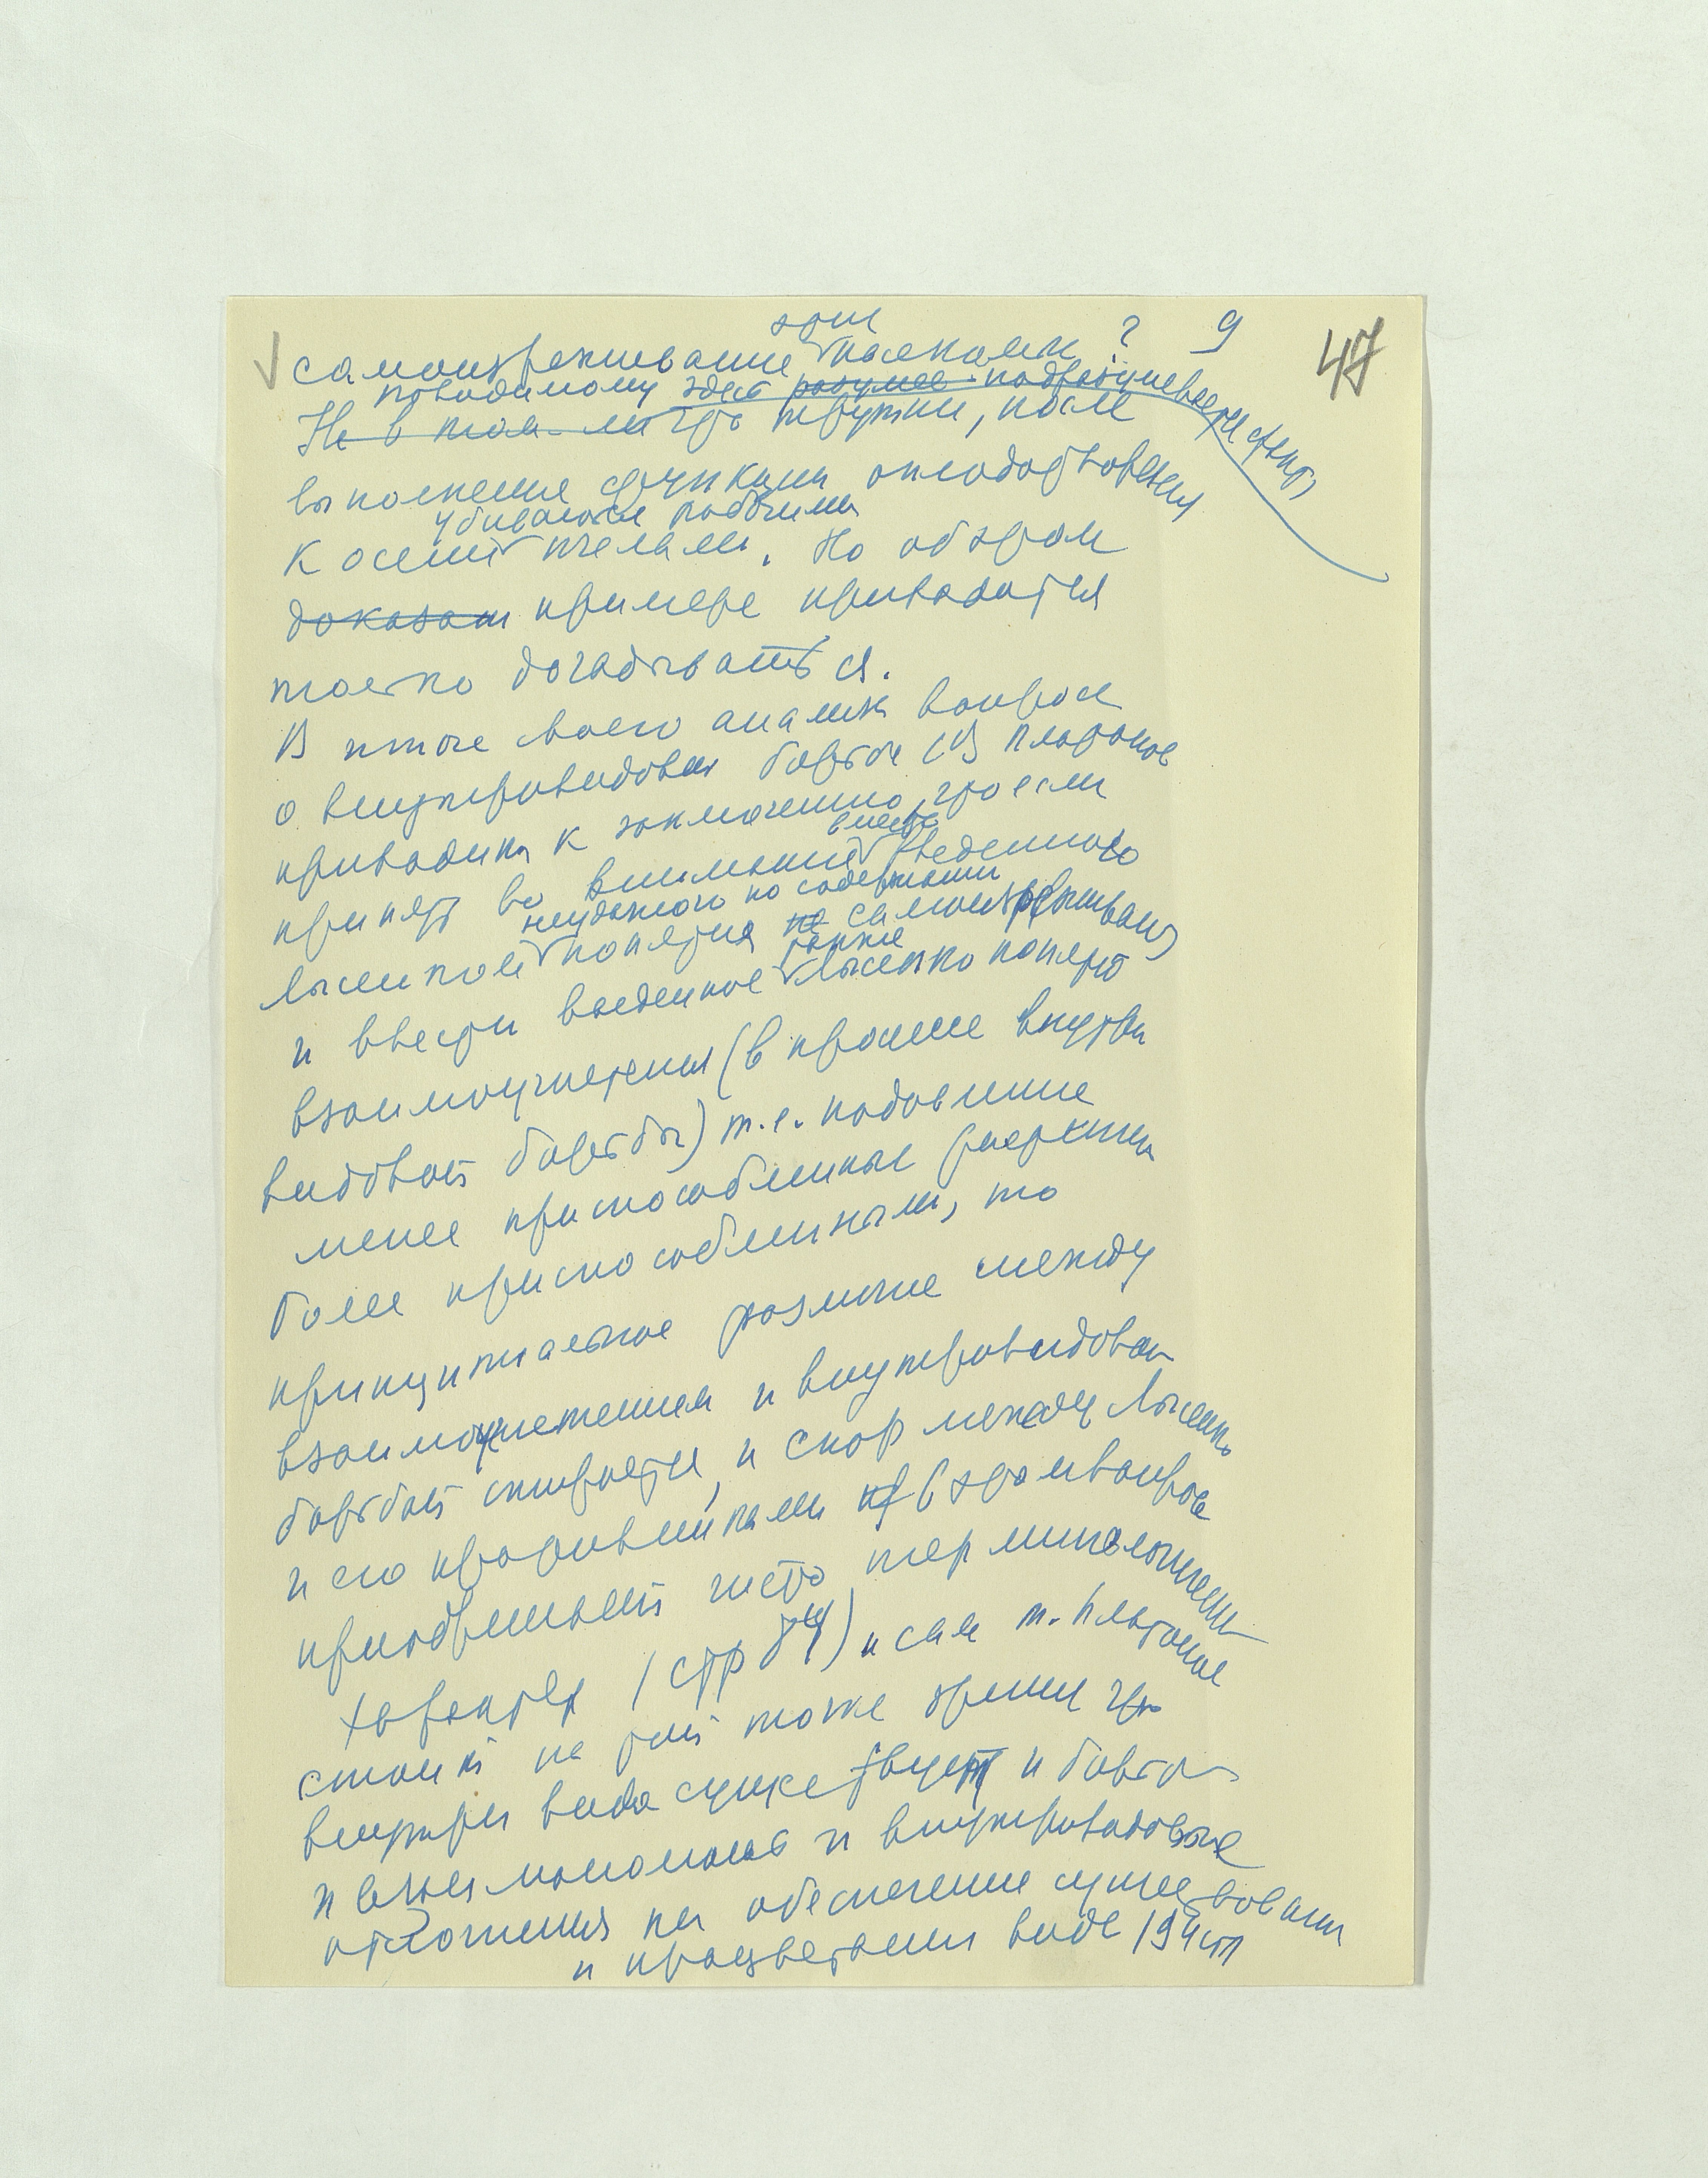 9
47
этим
самоизреживание насекомым ?
повидимому здесь разумее подразумевается факт
Не в том ли что трутни, после
выполнения функции оплодотворения
убиваются рабочими
к осени пчелами. Но об этом
доказат примере приходится
только догадываться.
В итоге своего анализа вопроса
о внутривидовой борьбе Г.В. Платонов
приходит к заключению, что если
вместо
принять во внимание введенного
неудачного по содержанию
Лысенкой понятия не самоизреживания
также
и ввести введенное Лысенко понятие
взаимоугнетения (в процессе внутри
видовой борьбы) т.е. подавление
менее приспособленных растений
более приспособленными, то
принципиальное различие между
взаимоугнетением и внутривидовой
борьбой стирается, и спор между Лысенко
и его противниками в этом вопросе
приобретает чисто терминологический
характер (стр 84) и сам т. Платонов
стоит на той точке зрения что
внутри вида существует и борьба
и взаимопомощь и внутривидовые
отношения на обеспечение существования
и процветания вида 194 стр